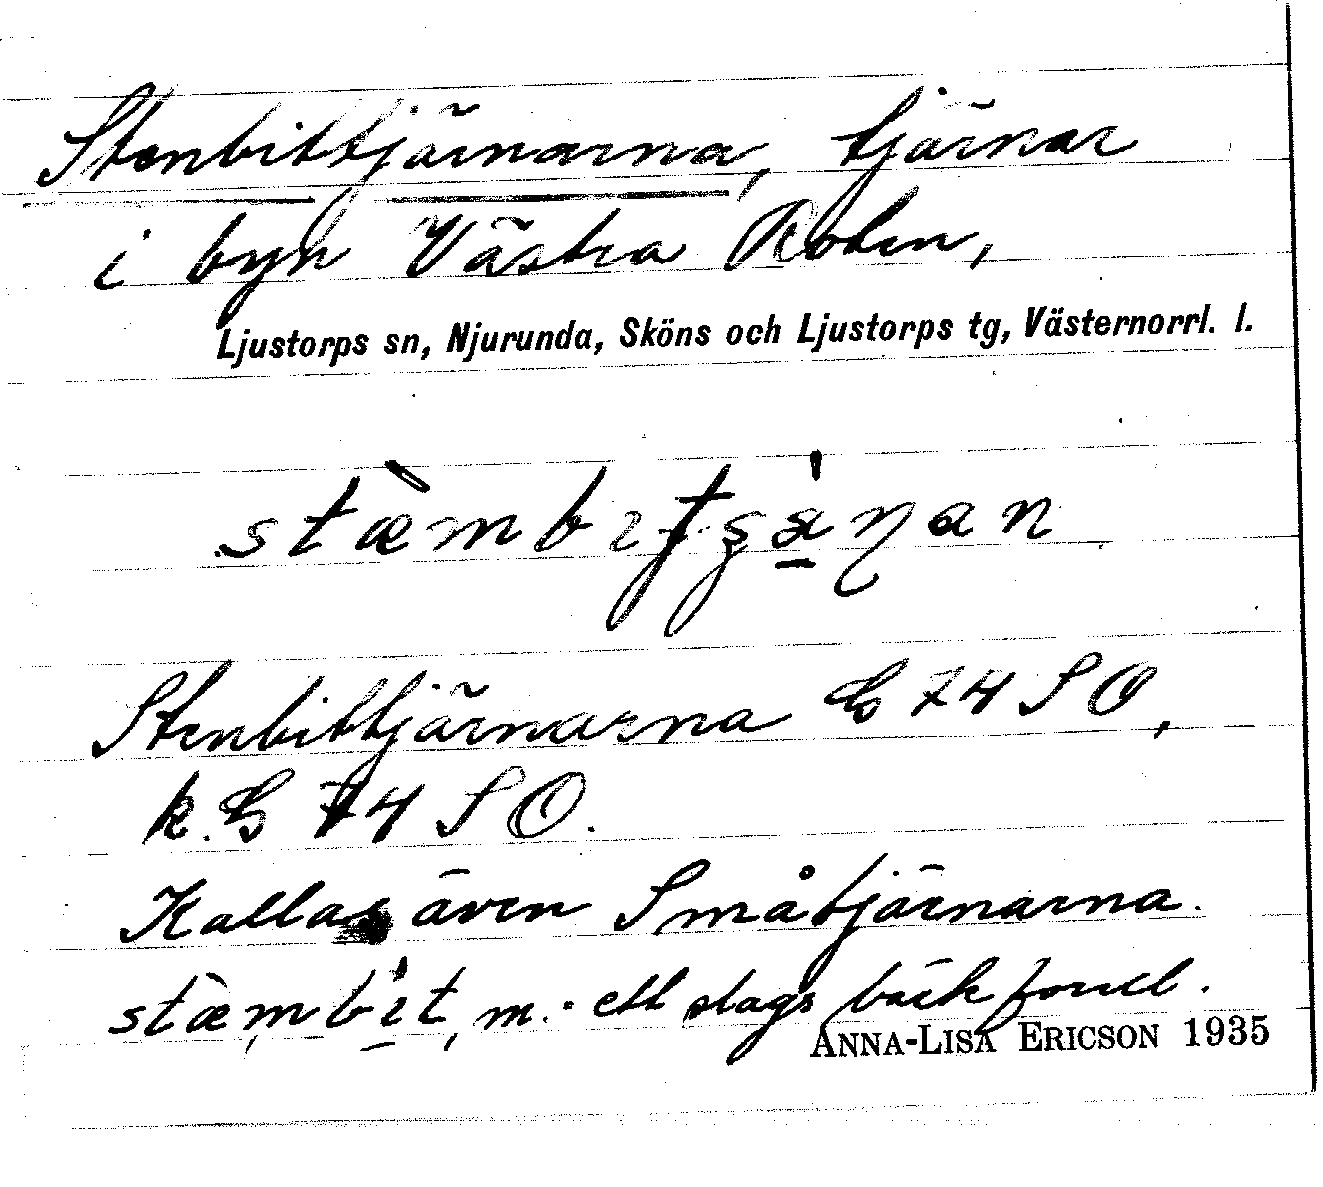 Stenbittjärnarna, tjärnar
i byn Västra
Ljustorps sn, Njurunda, Sköns och Ljustorps tg, Västernorrl. l.
Stenbittjärnarna G 74 S O,
k. G 74 S O.
Kallas även Småtjärnarna.
stæmbit, m. ett slags bäckforell.
ANNA-LISA ERICSON 1935